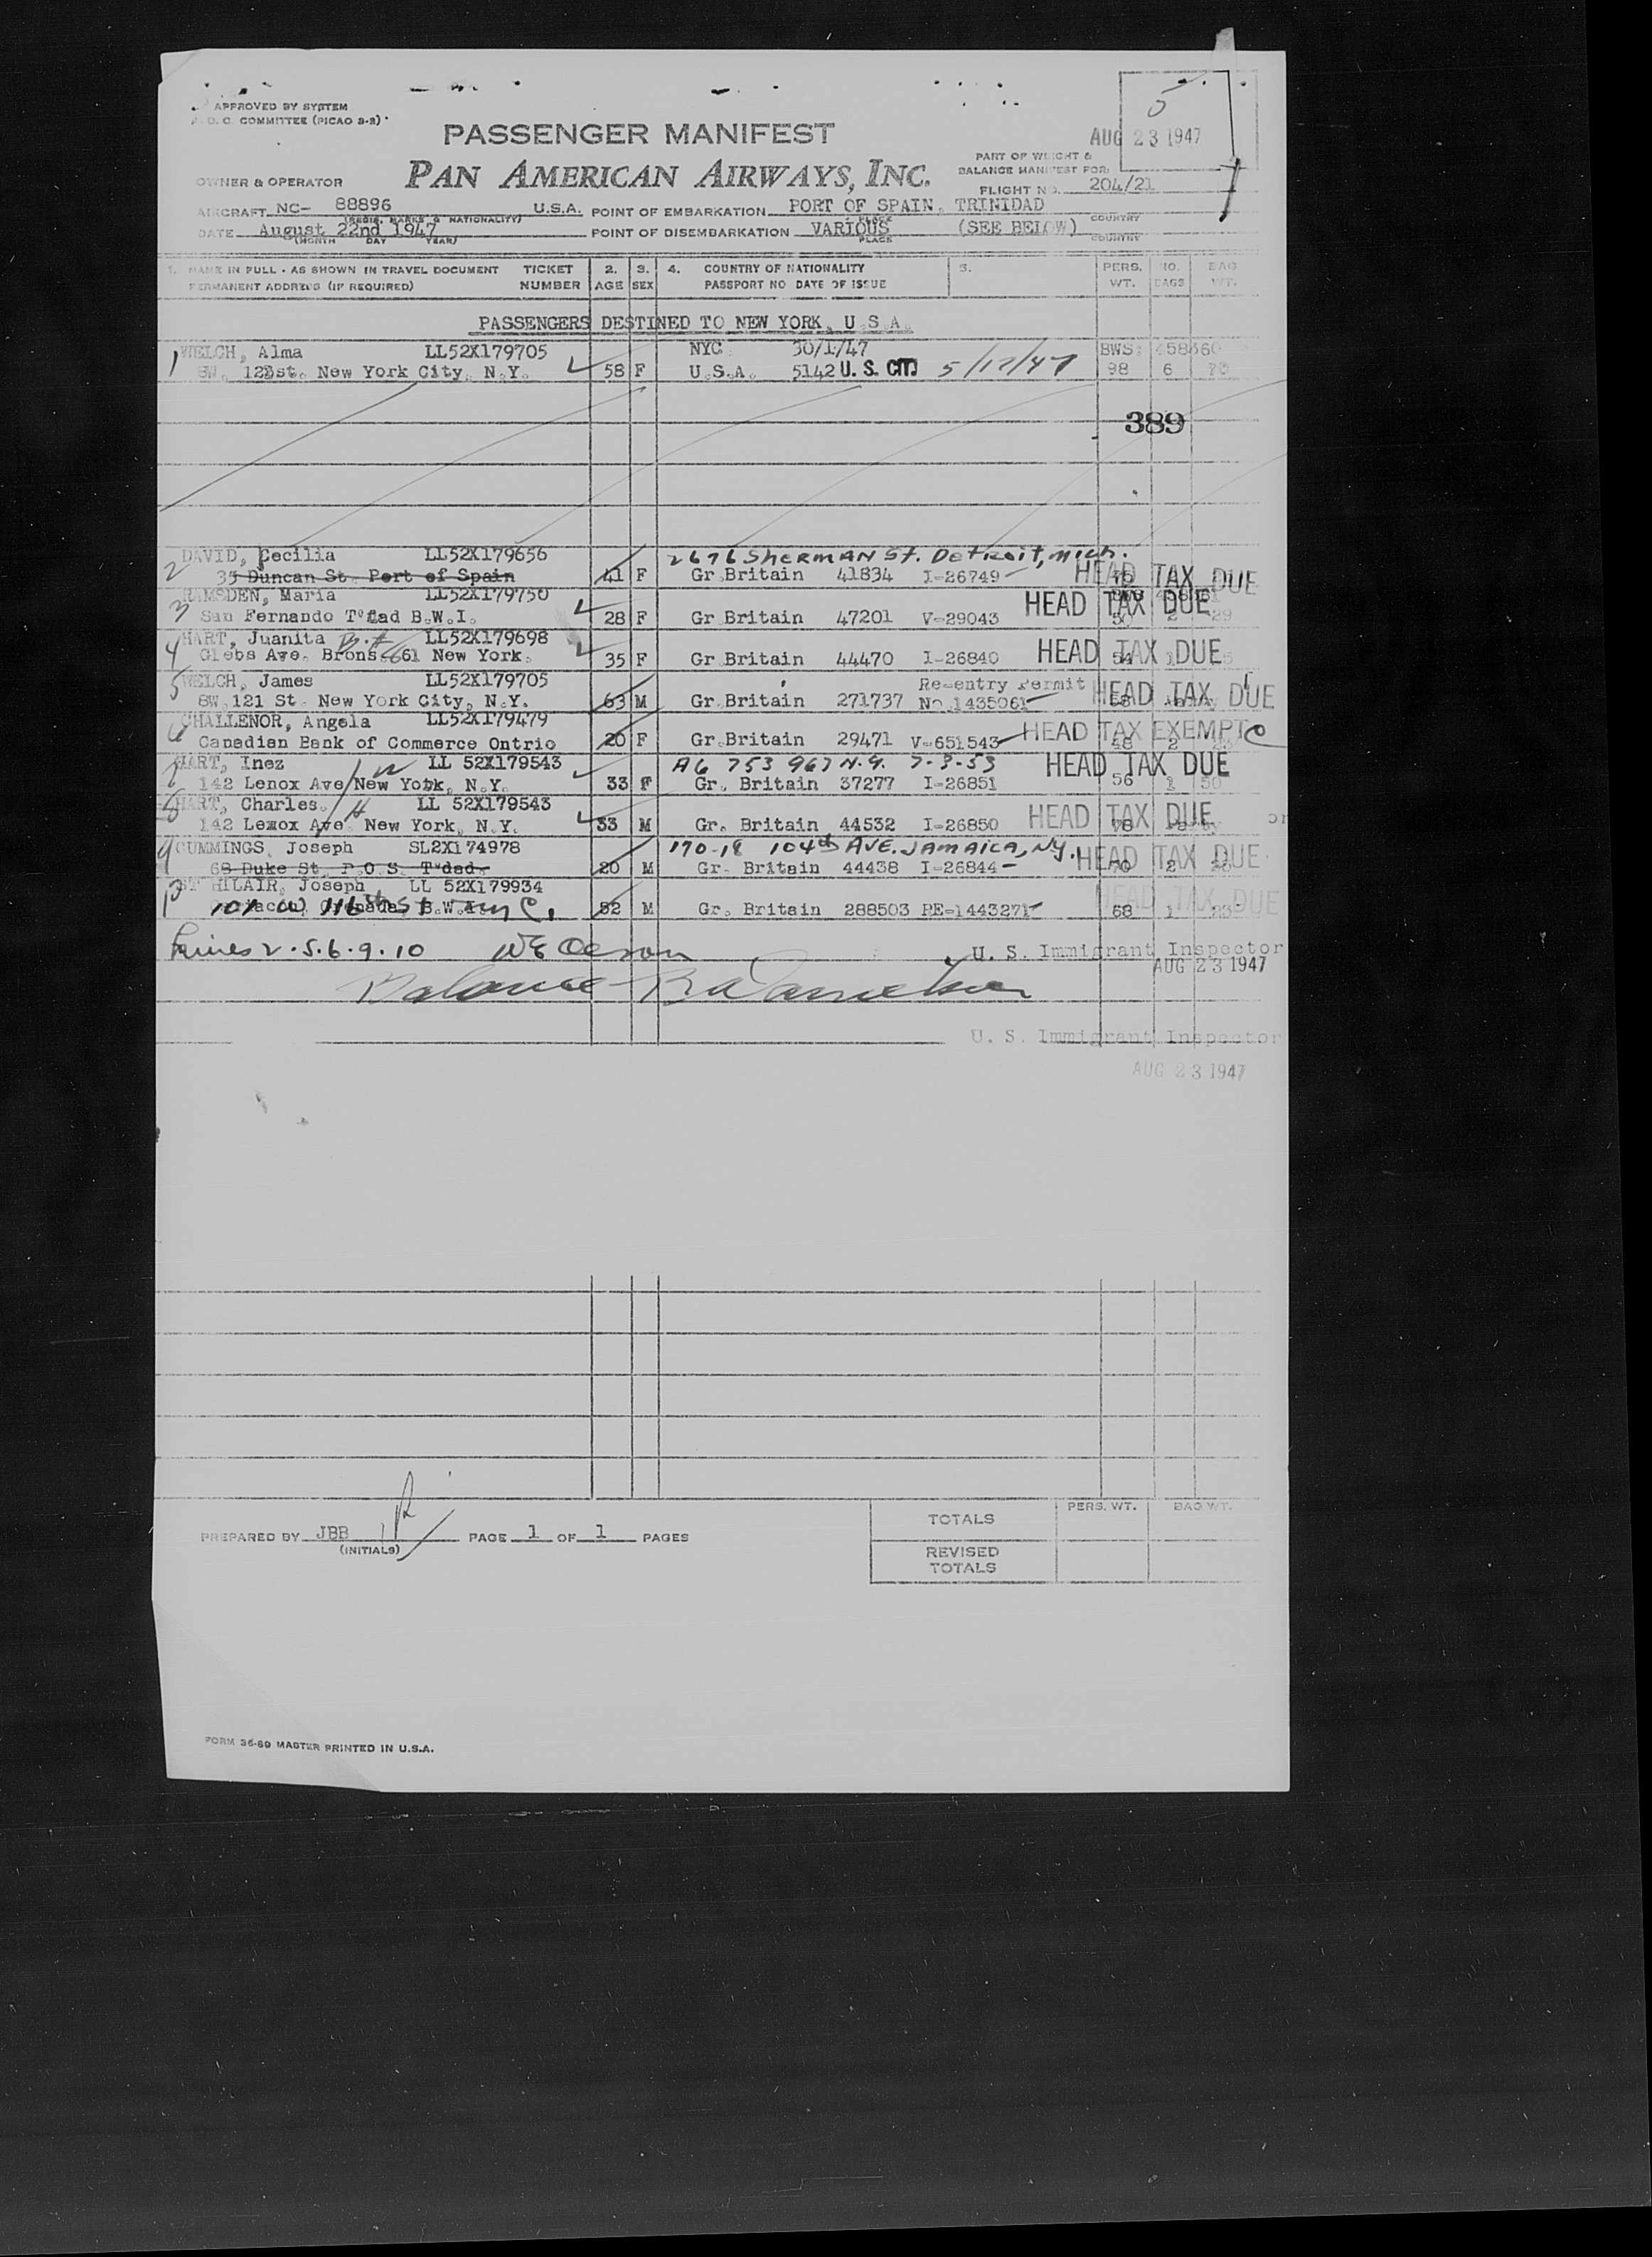 APPROVED BY SYSTEM
COMMITTEE (PICAO 2-2)
5
PASSENGER MANIFEST
AUG 23 1947
PAN AMERICAN AIRWAYS, INC.
PART OF WEIGHT &
BALANCE MANIFEST FOR:
OWNER & OPERATOR
FLIGHT NO. 204/21
AIRCRAFT NC- 88896 U.S.A. POINT OF EMBARKATION PORT OF SPAIN, TRINIDAD
(REGIS. MARKS & NATIONALITY) PLACE COUNTRY
DATE August 22nd 1947 POINT OF DISEMBARKATION VARIOUS (SEE BELOW)
(MONTH DAY YEAR) PLACE COUNTRY
1. NAME IN FULL - AS SHOWN IN TRAVEL DOCUMENT TICKET 2. 3. 4. COUNTRY OF NATIONALITY 5. PERS. NO. BAG
PERMANENT ADDRESS (IF REQUIRED) NUMBER AGE SEX PASSPORT NO DATE OF ISSUE WT. BAGS WT.
PASSENGERS DESTINED TO NEW YORK, U.S.A.
1 WELCH, Alma LL52X179705 NYC 30/1/47 BWS:
New York City, N.Y. 58 F U.S.A. 5142 U. S. CIT 5/12/47 98 6
389
2 DAVID, Cecilia LL52X179656 2676 SHERMAN St. Detroit, Mich.
35 Duncan St. Port of Spain 41 F Gr.Britain 41834 I-26749 HEAD TAX DUE
3 RAMSDEN, Maria LL52X179750
San Fernando T'dad B.W.I. 28 F Gr Britain 47201 V-29043 HEAD TAX DUE
4 HART, Juanita LL52X179698
Glebs Ave. Brons. 661 New York. 35 F Gr Britain 44470 I-26840 HEAD TAX DUE
5 WELCH, James LL52X179705 Re-entry Permit
8W 121 St. New York City, N.Y. 63 M Gr.Britain 271737 No.1435061 HEAD TAX DUE
6 CHALLENOR, Angela LL52X179479
Canadian Bank of Commerce Ontrio 20 F Gr.Britain 29471 V-651543 HEAD TAX EXEMPT
7 HART, Inez LL 52X179543 A6 753 967 N.Y. 7-3-53
142 Lenox Ave New York, N.Y. 33 F Gr. Britain 37277 I-26851 HEAD TAX DUE
8 HART, Charles. LL 52X179543
142 Lenox Ave. New York, N.Y. 33 M Gr. Britain 44532 I-26850 HEAD TAX DUE
9 CUMMINGS, Joseph SL2X174978 170-18 104th AVE. JAMAICA, N.Y.
68 Duke St. P.O.S. T'dad. 20 M Gr. Britain 44438 I-26844 HEAD TAX DUE
10 ST HILAIR, Joseph LL 52X179934
101 W 116th St N.Y.C. B.W.I. 52 M Gr. Britain 288503 RE-1443271 68 1 HEAD TAX DUE
Lines 2.5.6.9.10
U. S. Immigrant Inspector
AUG 23 1947
Balance
U. S. Immigrant Inspector
AUG 23 1947
PREPARED BY JBB PAGE 1 OF 1 PAGES
(INITIALS)
PERS. WT. BAG WT.
TOTALS
REVISED
TOTALS
FORM 36-60 MASTER PRINTED IN U.S.A.